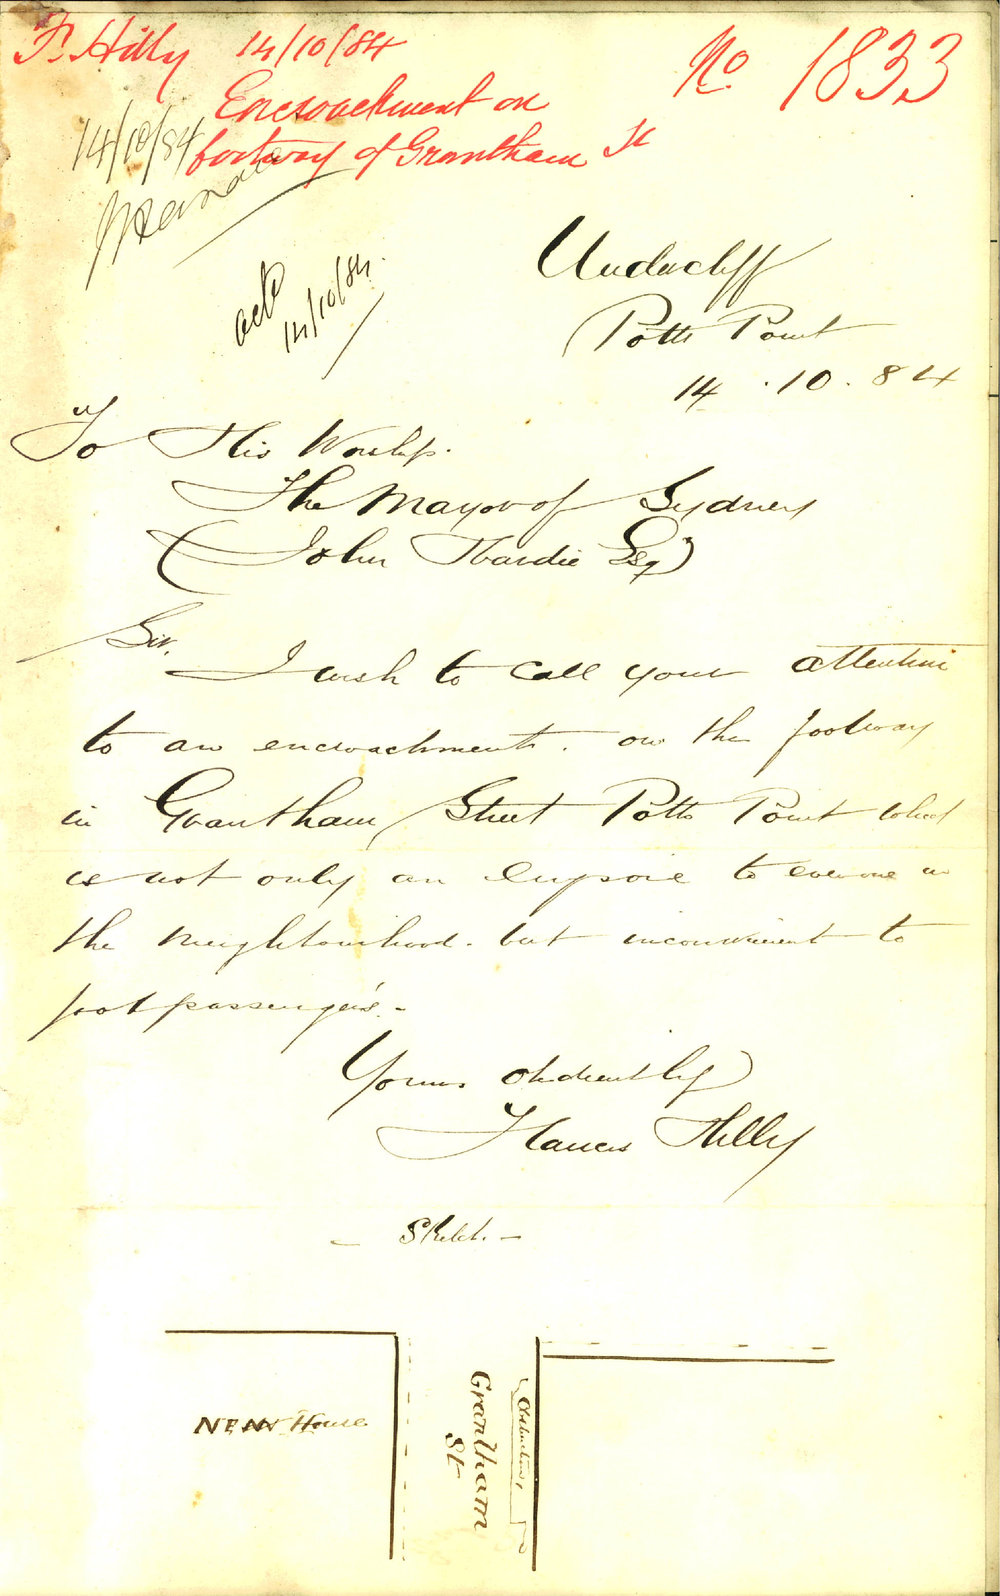 F. Hilly 14/10/84
No 1833
Encroachment on
footway of Grantham St
14/10/84
ack
14/10/84.
Undercliff
Potts Point
14.10.84
To His Worship.
The Mayor of Sydney
(John Hardie Esq)
Sir.
I wish to call your attention
to an encroachment. on the footway
in Grantham Street Potts Point which
is not only an eyesore to everyone in
the neighbourhood. but inconvenient to
foot passengers. -
Yours obediently
Francis Hilly
- Sketch. -
NEW House
Grantham
St
Obstructions